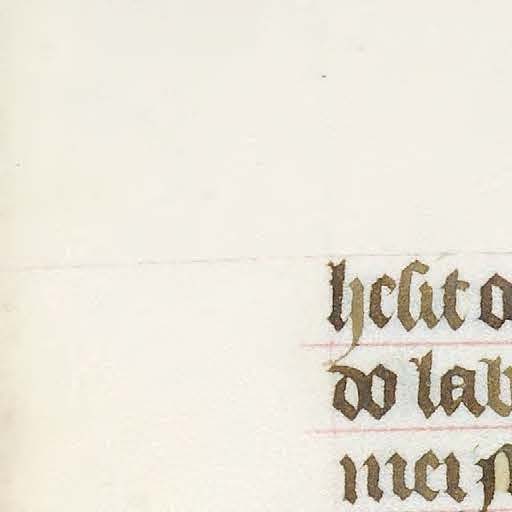 hesit o
do lab
mei